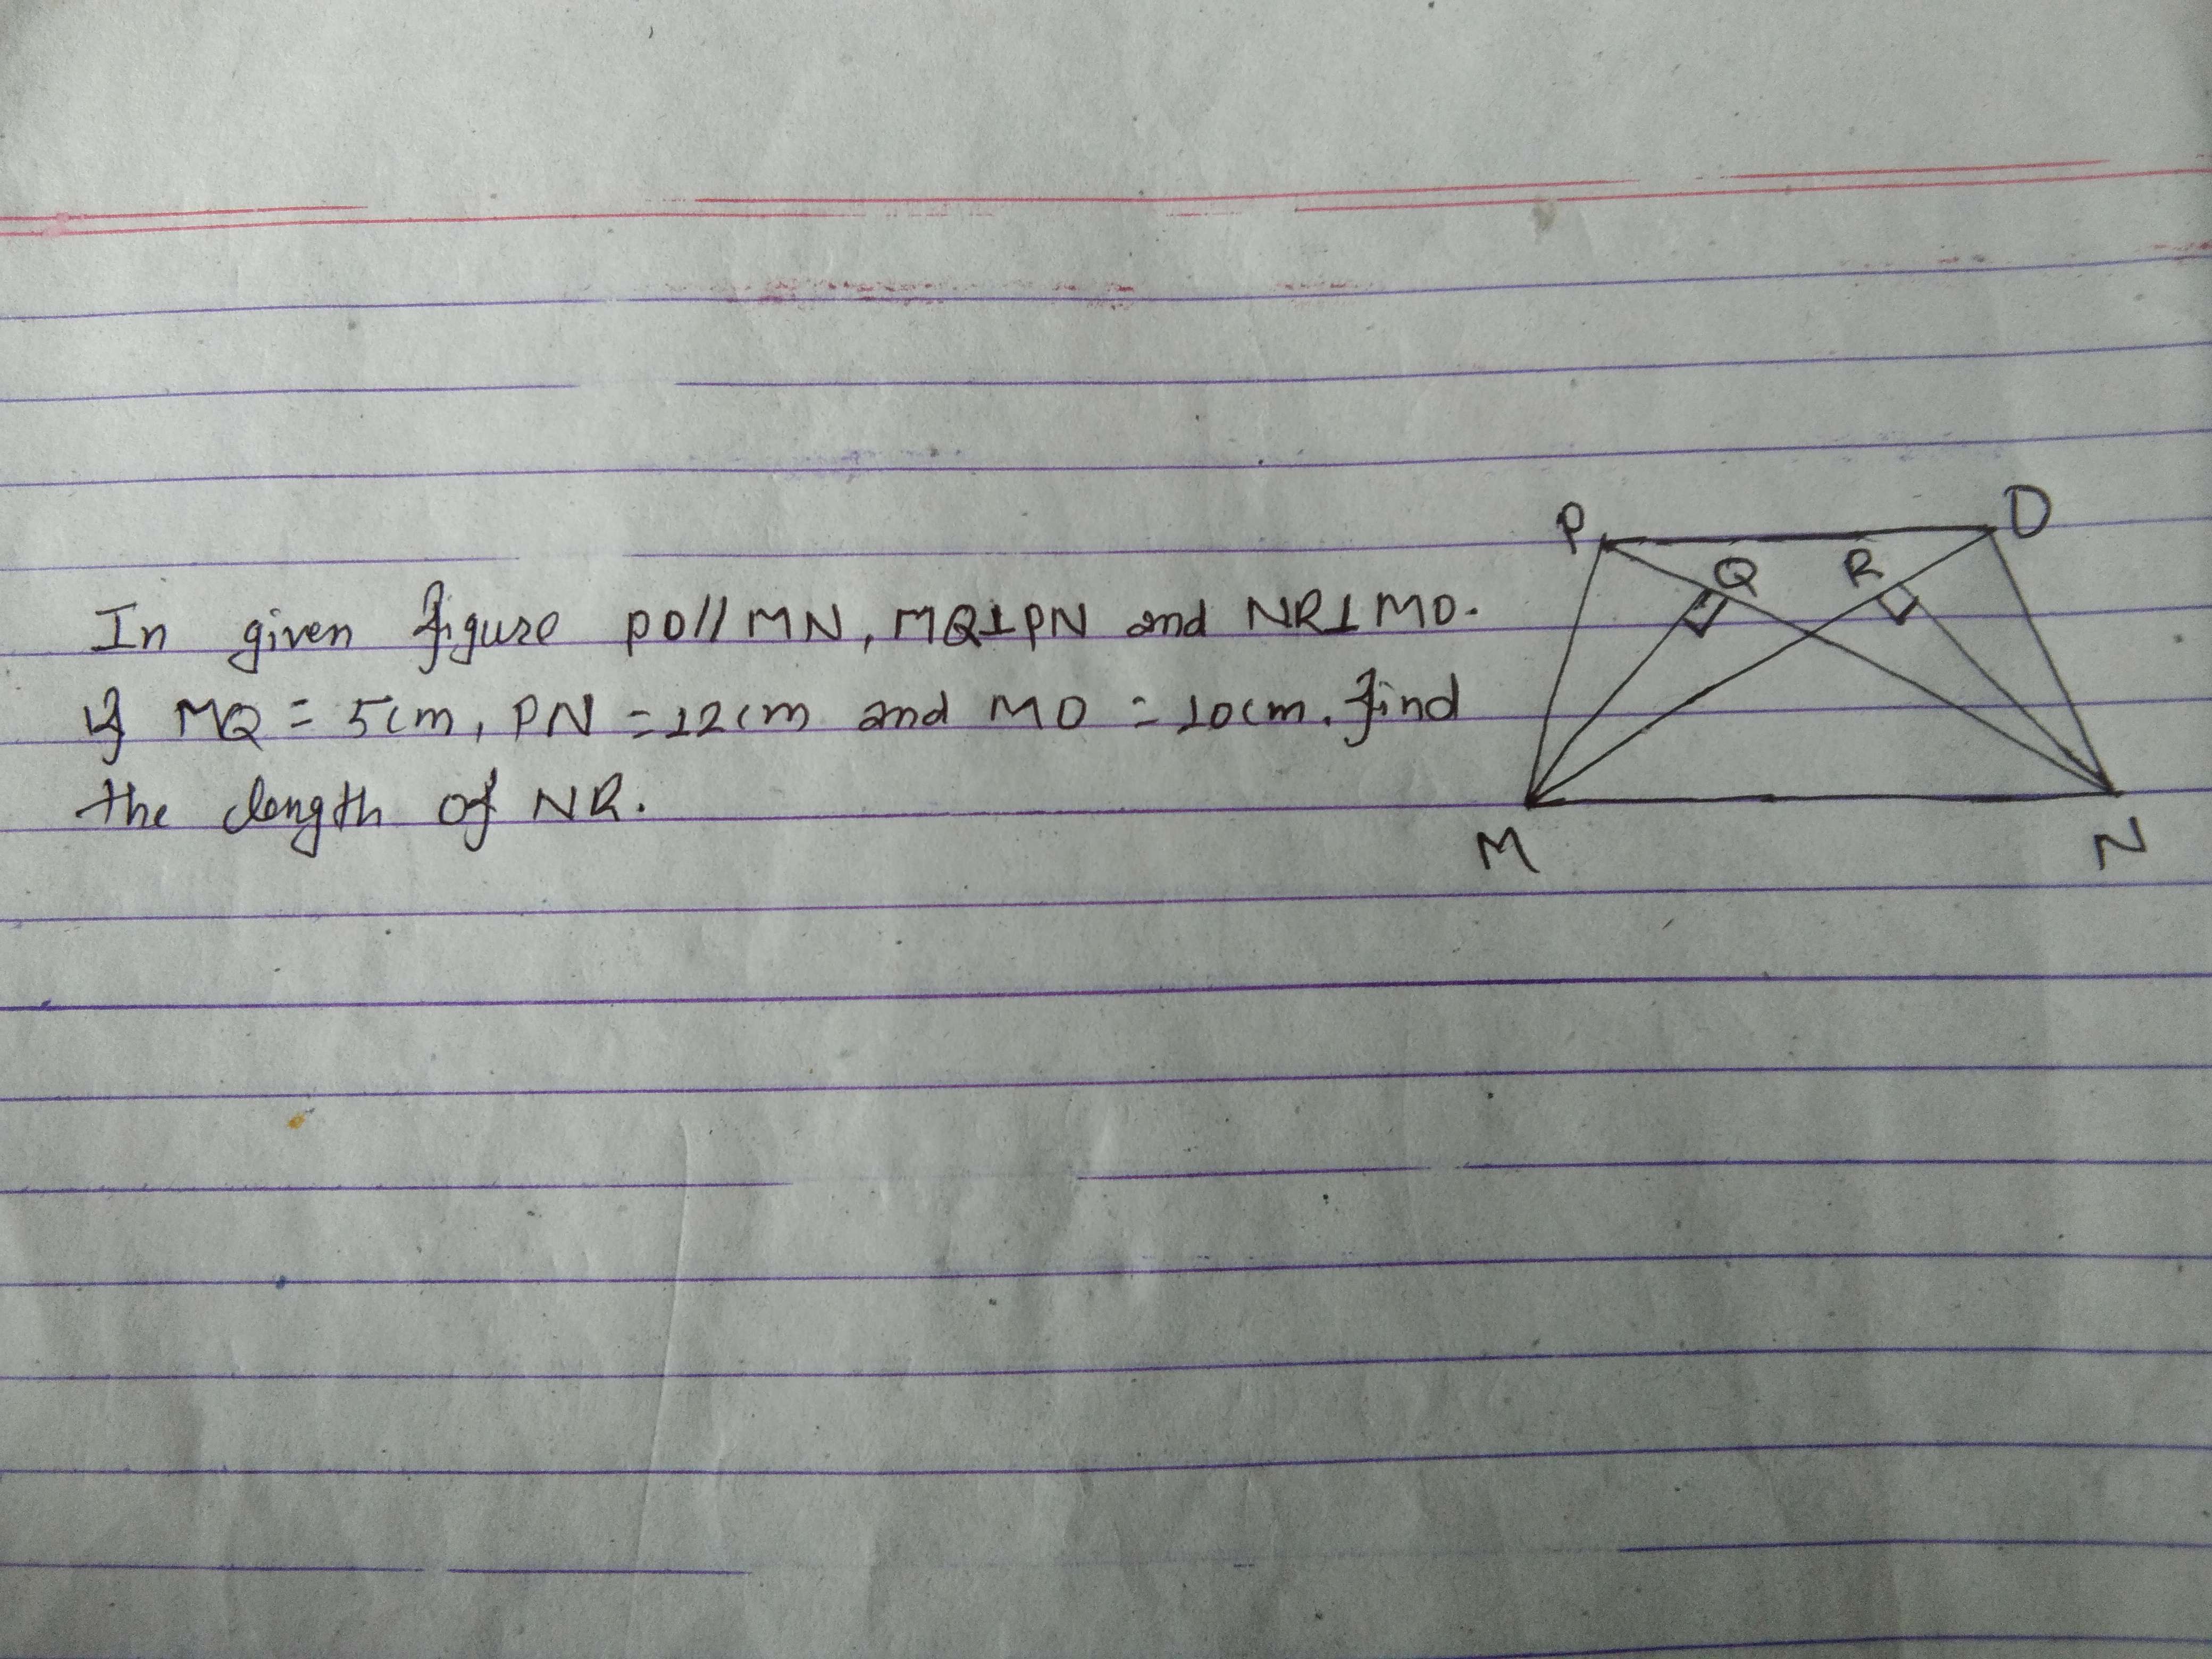 In given figure PO // MN, MQ⊥PN and NR⊥MO.
if MQ = 5cm, PN = 12cm and MO = 10cm. find
the length of NR.
P
O
Q
R
M
N